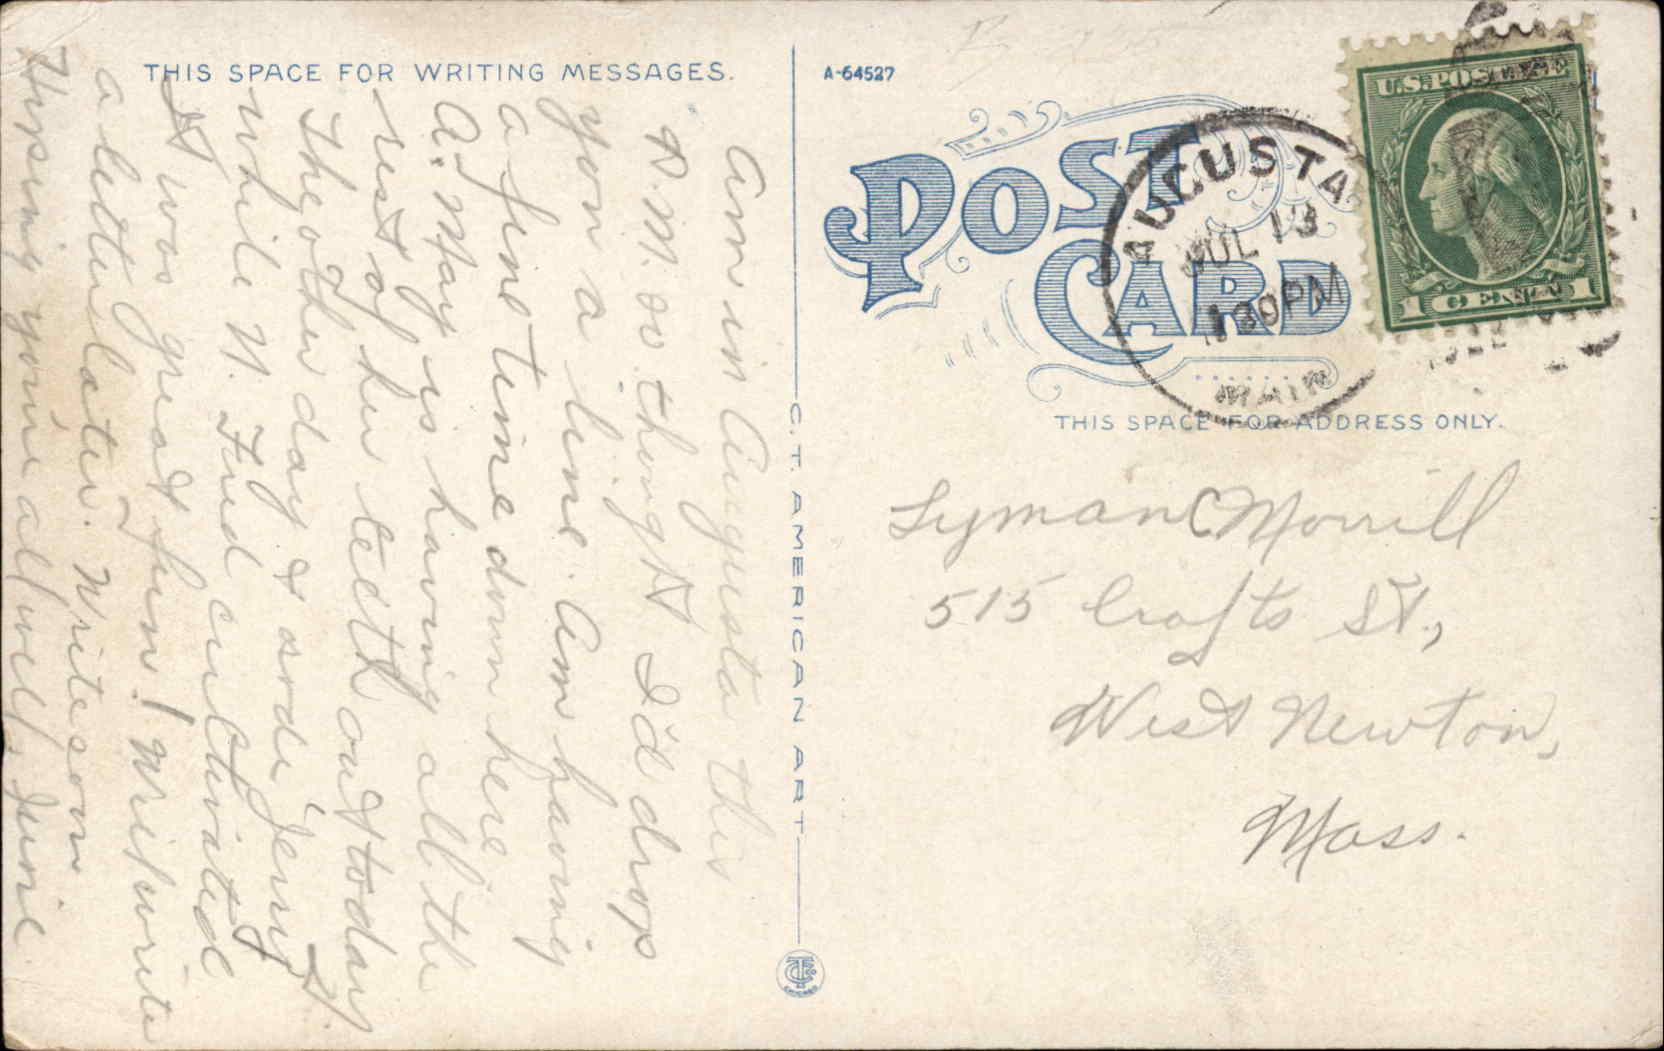 THIS SPACE FOR WRITING MESSAGES.
Am in Augusta this
P.M. so thought I'd drop
you a line. Am having
a fine time down here
A. May is having all the
rest of her teeth out today
The other day I rode Jerry
while N. Fred cultivated
It was great fun! Will write
a letter later. Write soon
Hoping you're all well, June.
C. T. AMERICAN ART
CHICAGO
A-64527
POST
CARD
AUGUSTA
JUL 13
130PM
MAINE
U.S. POSTAGE
1 CENT 1
THIS SPACE FOR ADDRESS ONLY.
Lyman C Morrill
515 Crafts St.,
West Newton,
Mass.